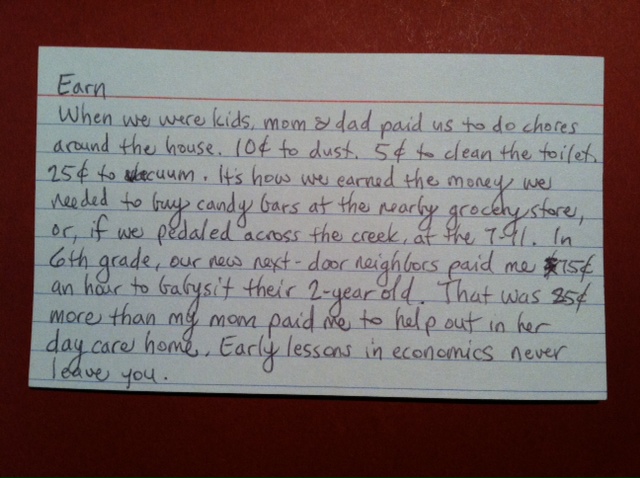 Earn
When we were kids, mom & dad paid us to do chores
around the house. 10¢ to dust. 5¢ to clean the toilet.
25¢ to vacuum. It's how we earned the money we
needed to buy candy bars at the nearby grocery store,
or, if we pedaled across the creek, at the 7-11. In
6th grade, our new next-door neighbors paid me 75¢
an hour to babysit their 2-year old. That was 25¢
more than my mom paid me to help out in her
day care home. Early lessons in economics never
leave you.